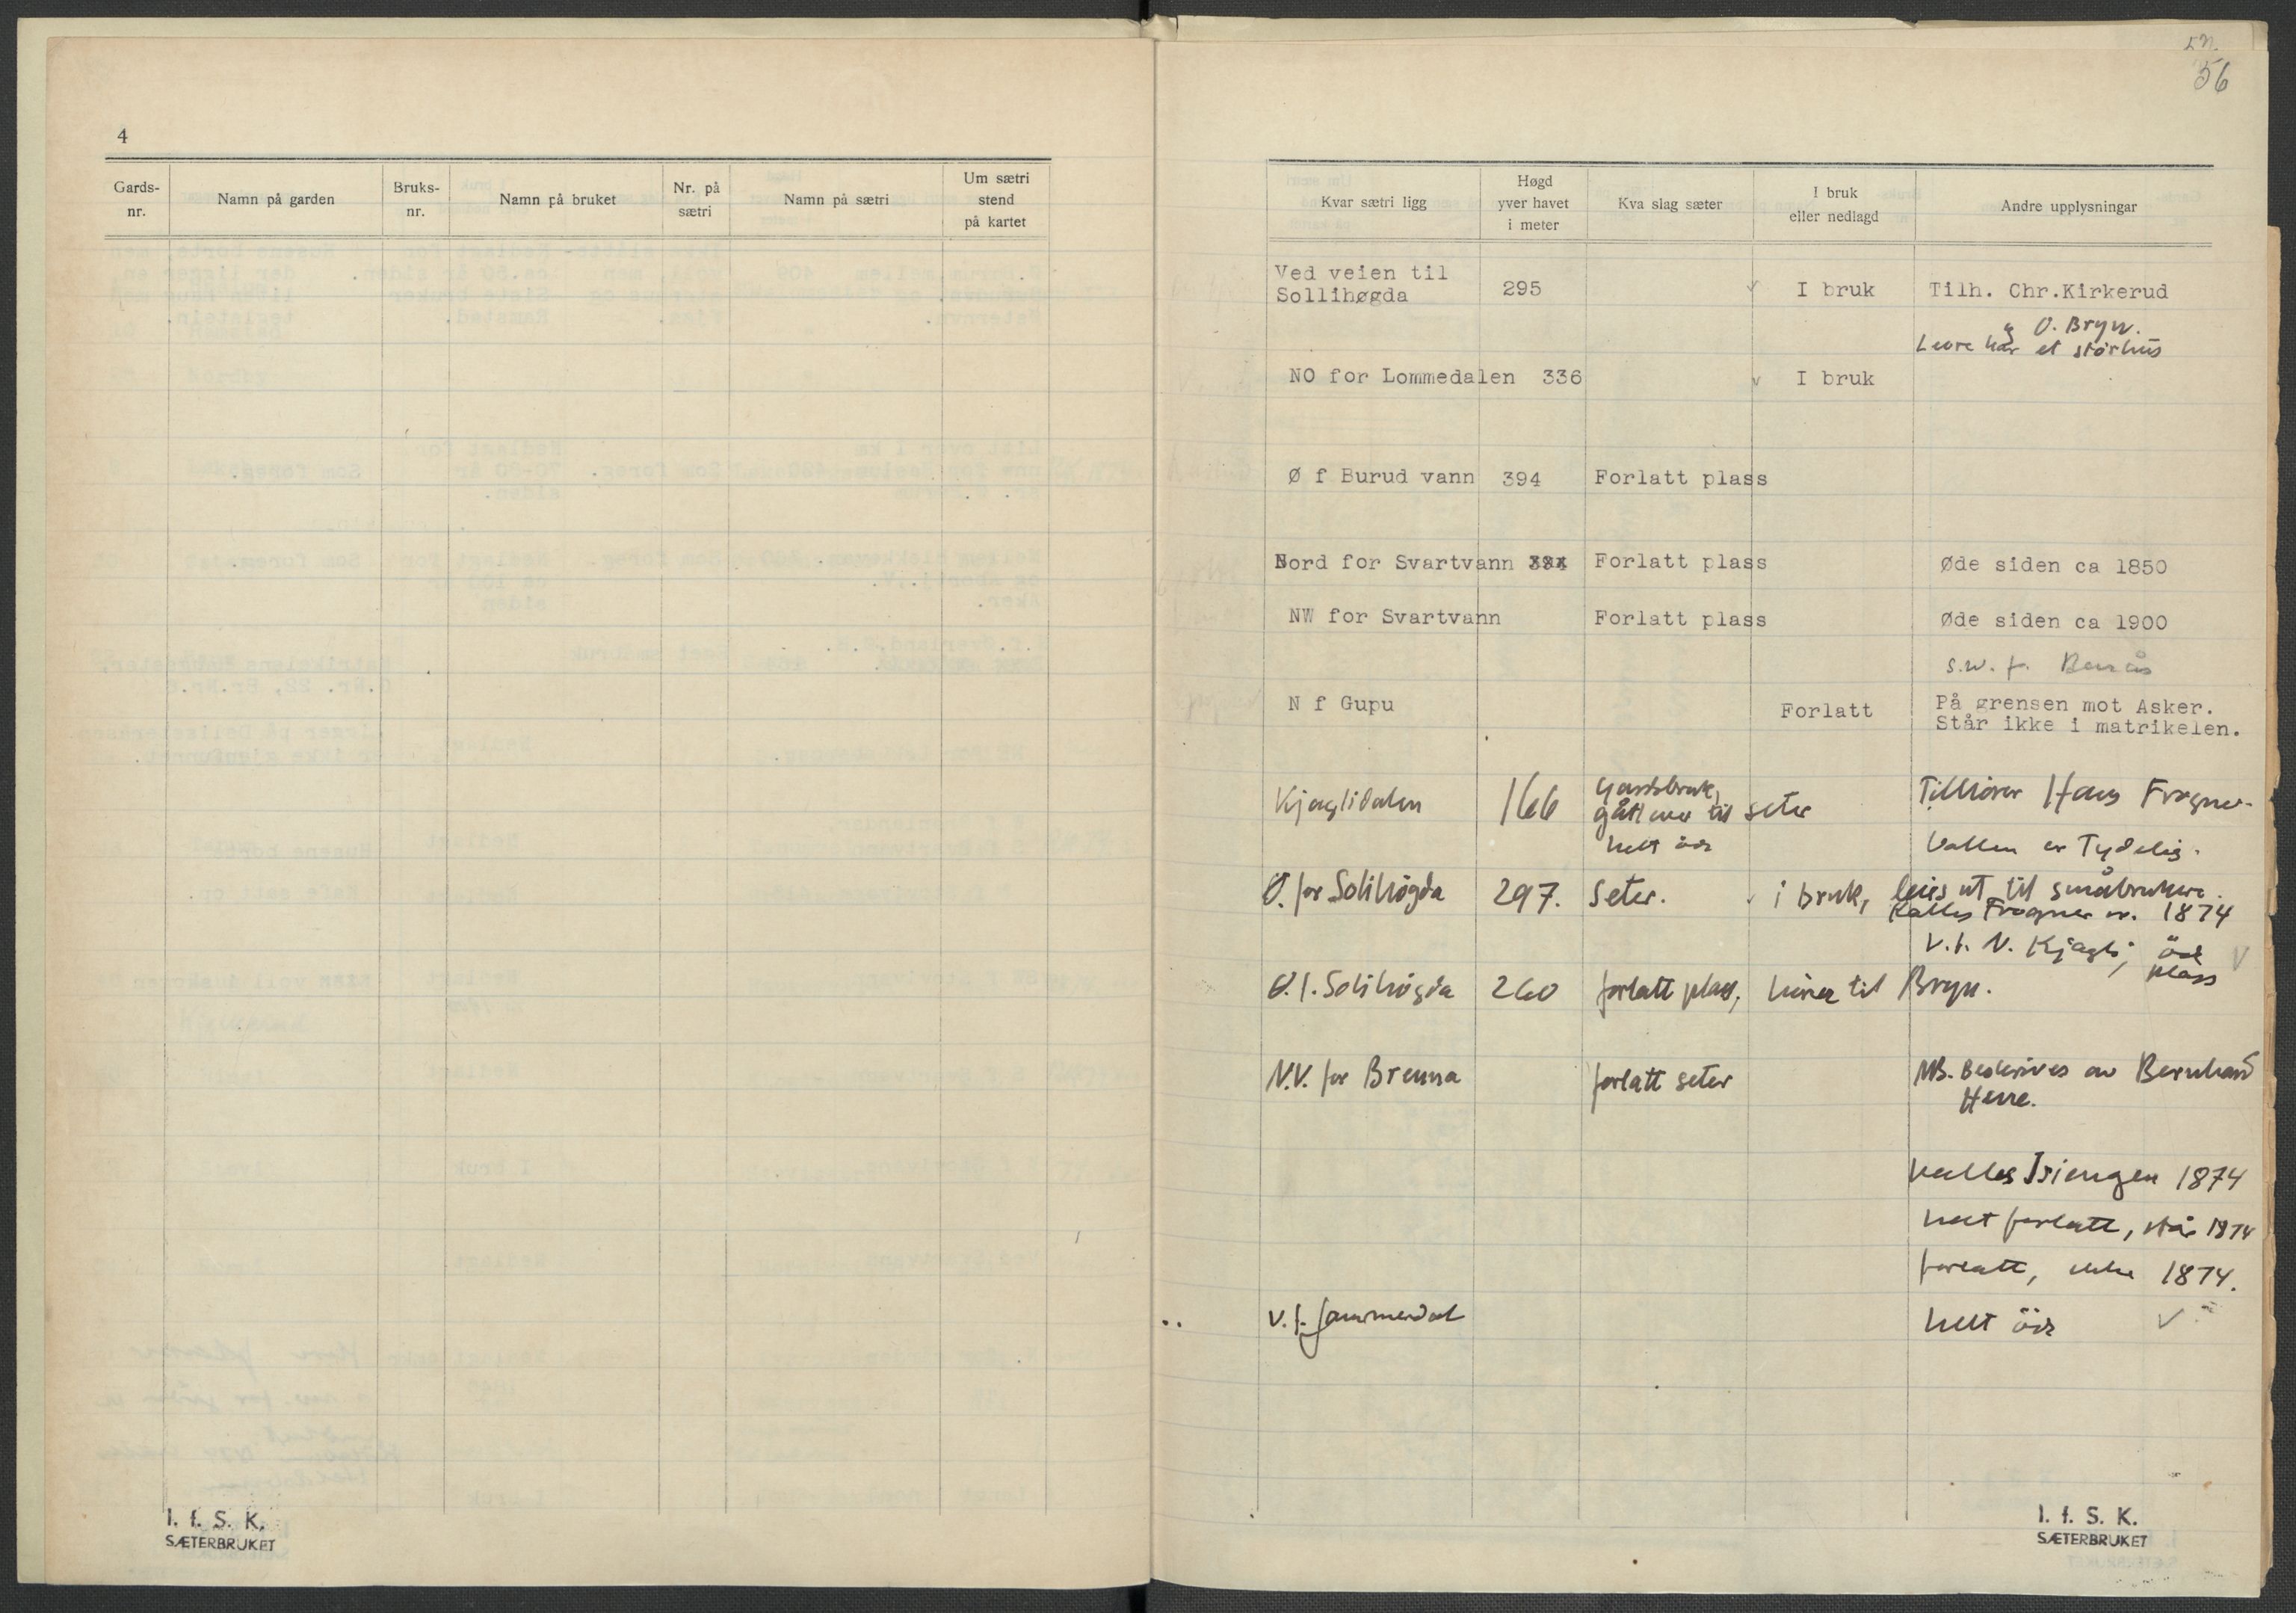 4
Gards-
nr.
Namn på garden
Bruks-
nr.
Namn på bruket
Nr. på
sætri
Namn på sætri
Um sætri
stend
på kartet
I. f. S. K.
SÆTERBRUKET
56
Kvar sætri ligg
Høgd
yver havet
i meter
Kva slag sæter
I bruk
eller nedlagd
Andre upplysningar
Ved veien til
Sollihøgda 295 I bruk Tilh. Chr.Kirkerud
O. Bryn.
har et störhus
NO for Lommedalen 336 I bruk
Ø f Burud vann 394 Forlatt plass
Nord for Svartvann Forlatt plass Øde siden ca 1850
NW for Svartvann Forlatt plass Øde siden ca 1900
S.W. f.
N f Gupu Forlatt På grensen mot Asker.
Står ikke i matrikelen.
Kjaglidalen 166 Gardsbruk, gått over til seter Tilhører Hans Frogner.
helt öde Vollen er Tydelig.
Ö. for Solihögda 297. Seter. i bruk, leies ut til småbrukere.
Kalles Frogner v. 1874
V. f. N. Kjagli, öde
plass
Ö. f. Solihögda 260 forlatt plass, hörer til Bryn.
N.V. for Brenna forlatt seter MB. Beskrives av Bernhard
Herre.
kalles Isiengen 1874
helt forlatt, står 1874
forlatt, ikke 1874.
V. f. helt öde
I. f. S. K.
SÆTERBRUKET